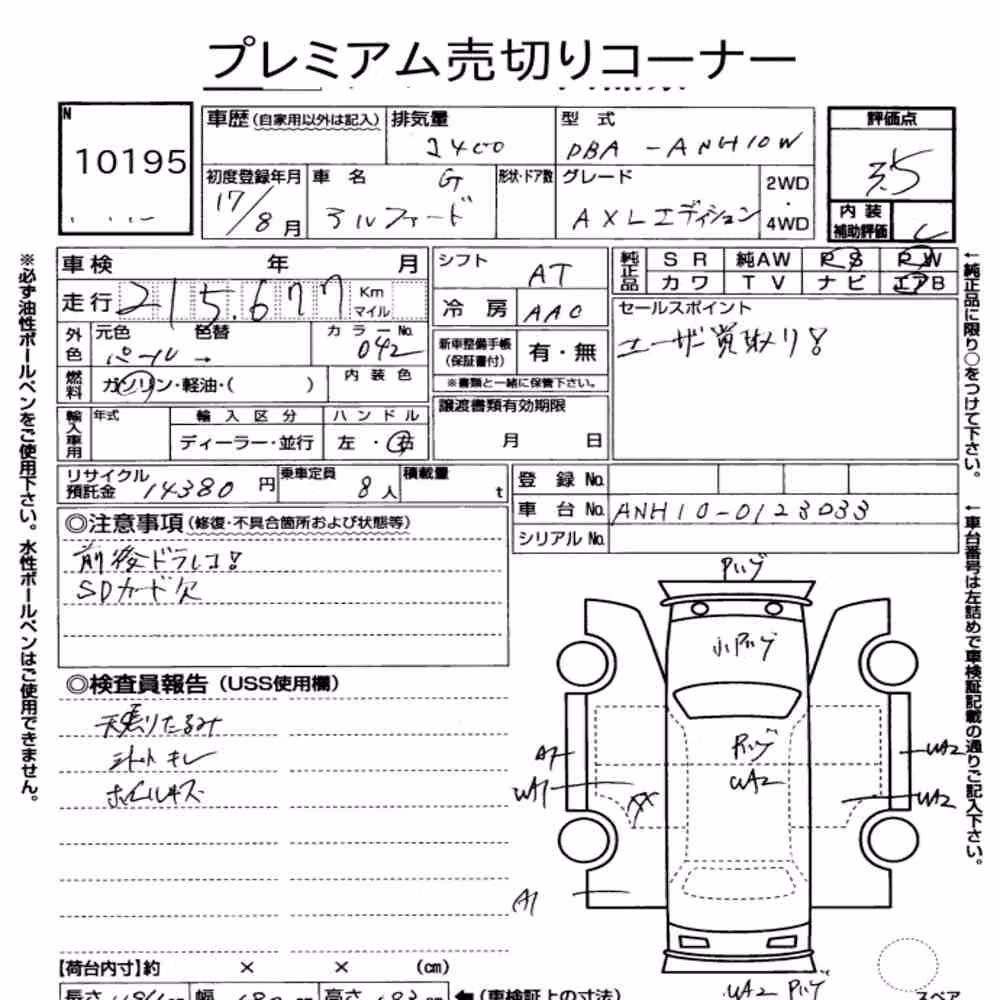 プレミアム売切りコーナー
N
10195
車歴 (自家用以外は記入)
排気量
2400
型式
DBA-ANH10W
評価点
3.5
初度登録年月
17/8月
車名
アルファードG
形状・ドア数
グレード
AXLエディション
2WD
・
4WD
内装
補助評価
C
車検 年 月
走行 215,677 Km マイル
外色
元色 色替
パール →
カラーNo.
042
燃料
ガソリン・軽油・( )
内装色
輸入車用
年式
輸入区分
ディーラー・並行
ハンドル
左・右
シフト
AT
冷房
AAC
新車整備手帳
(保証書付)
有・無
※書類と一緒に保管下さい。
譲渡書類有効期限
月 日
純正品
SR 純AW PS PW
カワ TV ナビ エアB
セールスポイント
ユーザー買取り!
リサイクル
預託金 14380 円
乗車定員
8人
積載量
t
登録No.
車台No. ANH10-0123033
シリアルNo.
◎注意事項 (修復・不具合箇所および状態等)
前後ドラレコ!
SDカード欠
◎検査員報告 (USS使用欄)
天張りたるみ
シートキレ
ホイールキズ
【荷台内寸】約 × × (cm)
長さ
幅
高さ
(車検証上の寸法)
Pハゲ
小Pハゲ
Pハゲ
UA2
A1
UA1
XX
A1
UA2
UA2
UA2 Pハゲ
スペア
※必ず油性ボールペンをご使用下さい。水性ボールペンはご使用できません。
←純正品に限り○をつけて下さい。
←車台番号は左詰めで車検証記載の通りご記入下さい。